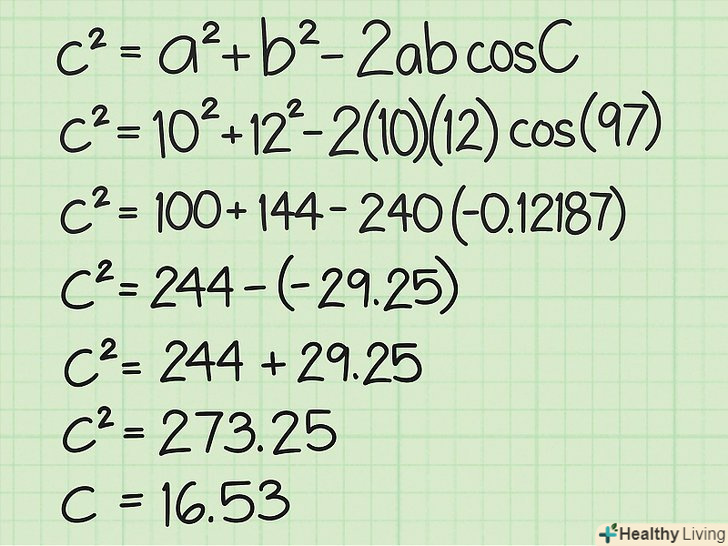 c² = a² + b² - 2ab cosC
c² = 10² + 12² - 2(10)(12) cos(97)
c² = 100 + 144 - 240(-0.12187)
c² = 244 - (-29.25)
c² = 244 + 29.25
c² = 273.25
c = 16.53
Healthy Living